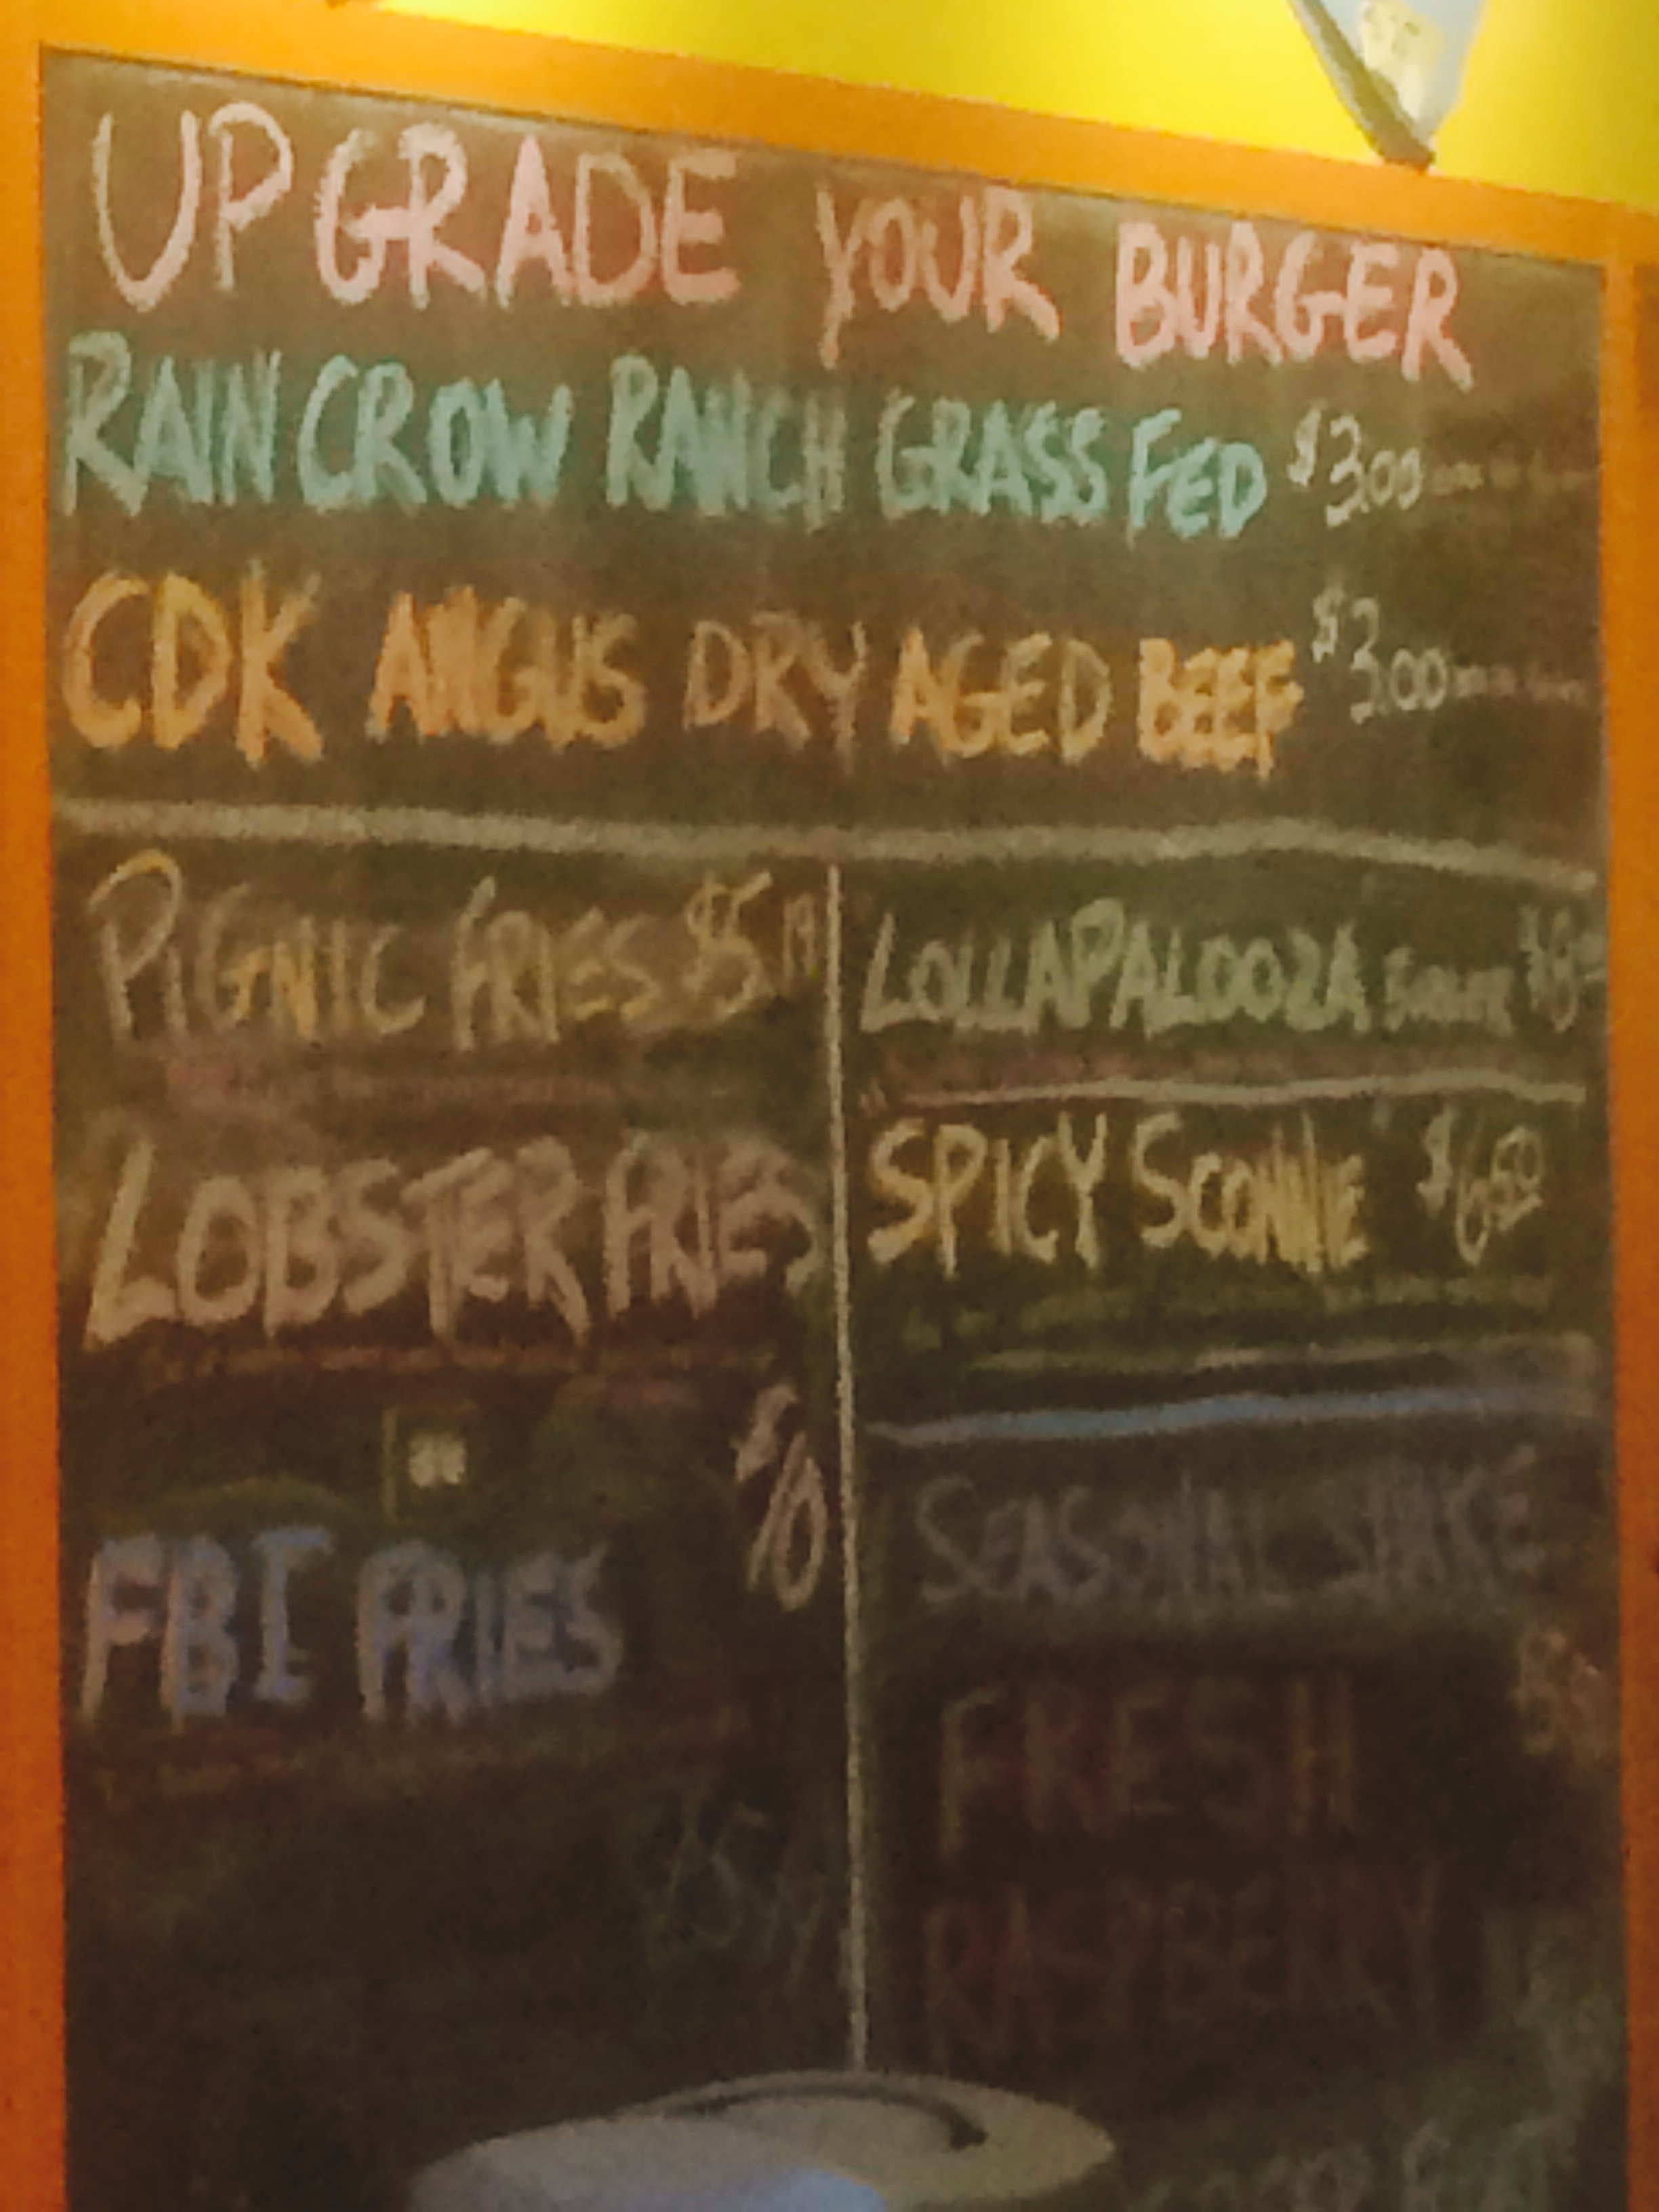 UPGRADE YOUR BURGER
RAIN CROW RANCH GRASS FED $3.00
CDK ANGUS DRY AGED BEEF $3.00
PIGNIC FRIES $5
LOBSTER FRIES
$10
FBI FRIES
LOLLAPALOOZA
SPICY SCONNIE $6.50
SEASONAL SHAKE
FRESH
RASPBERRY